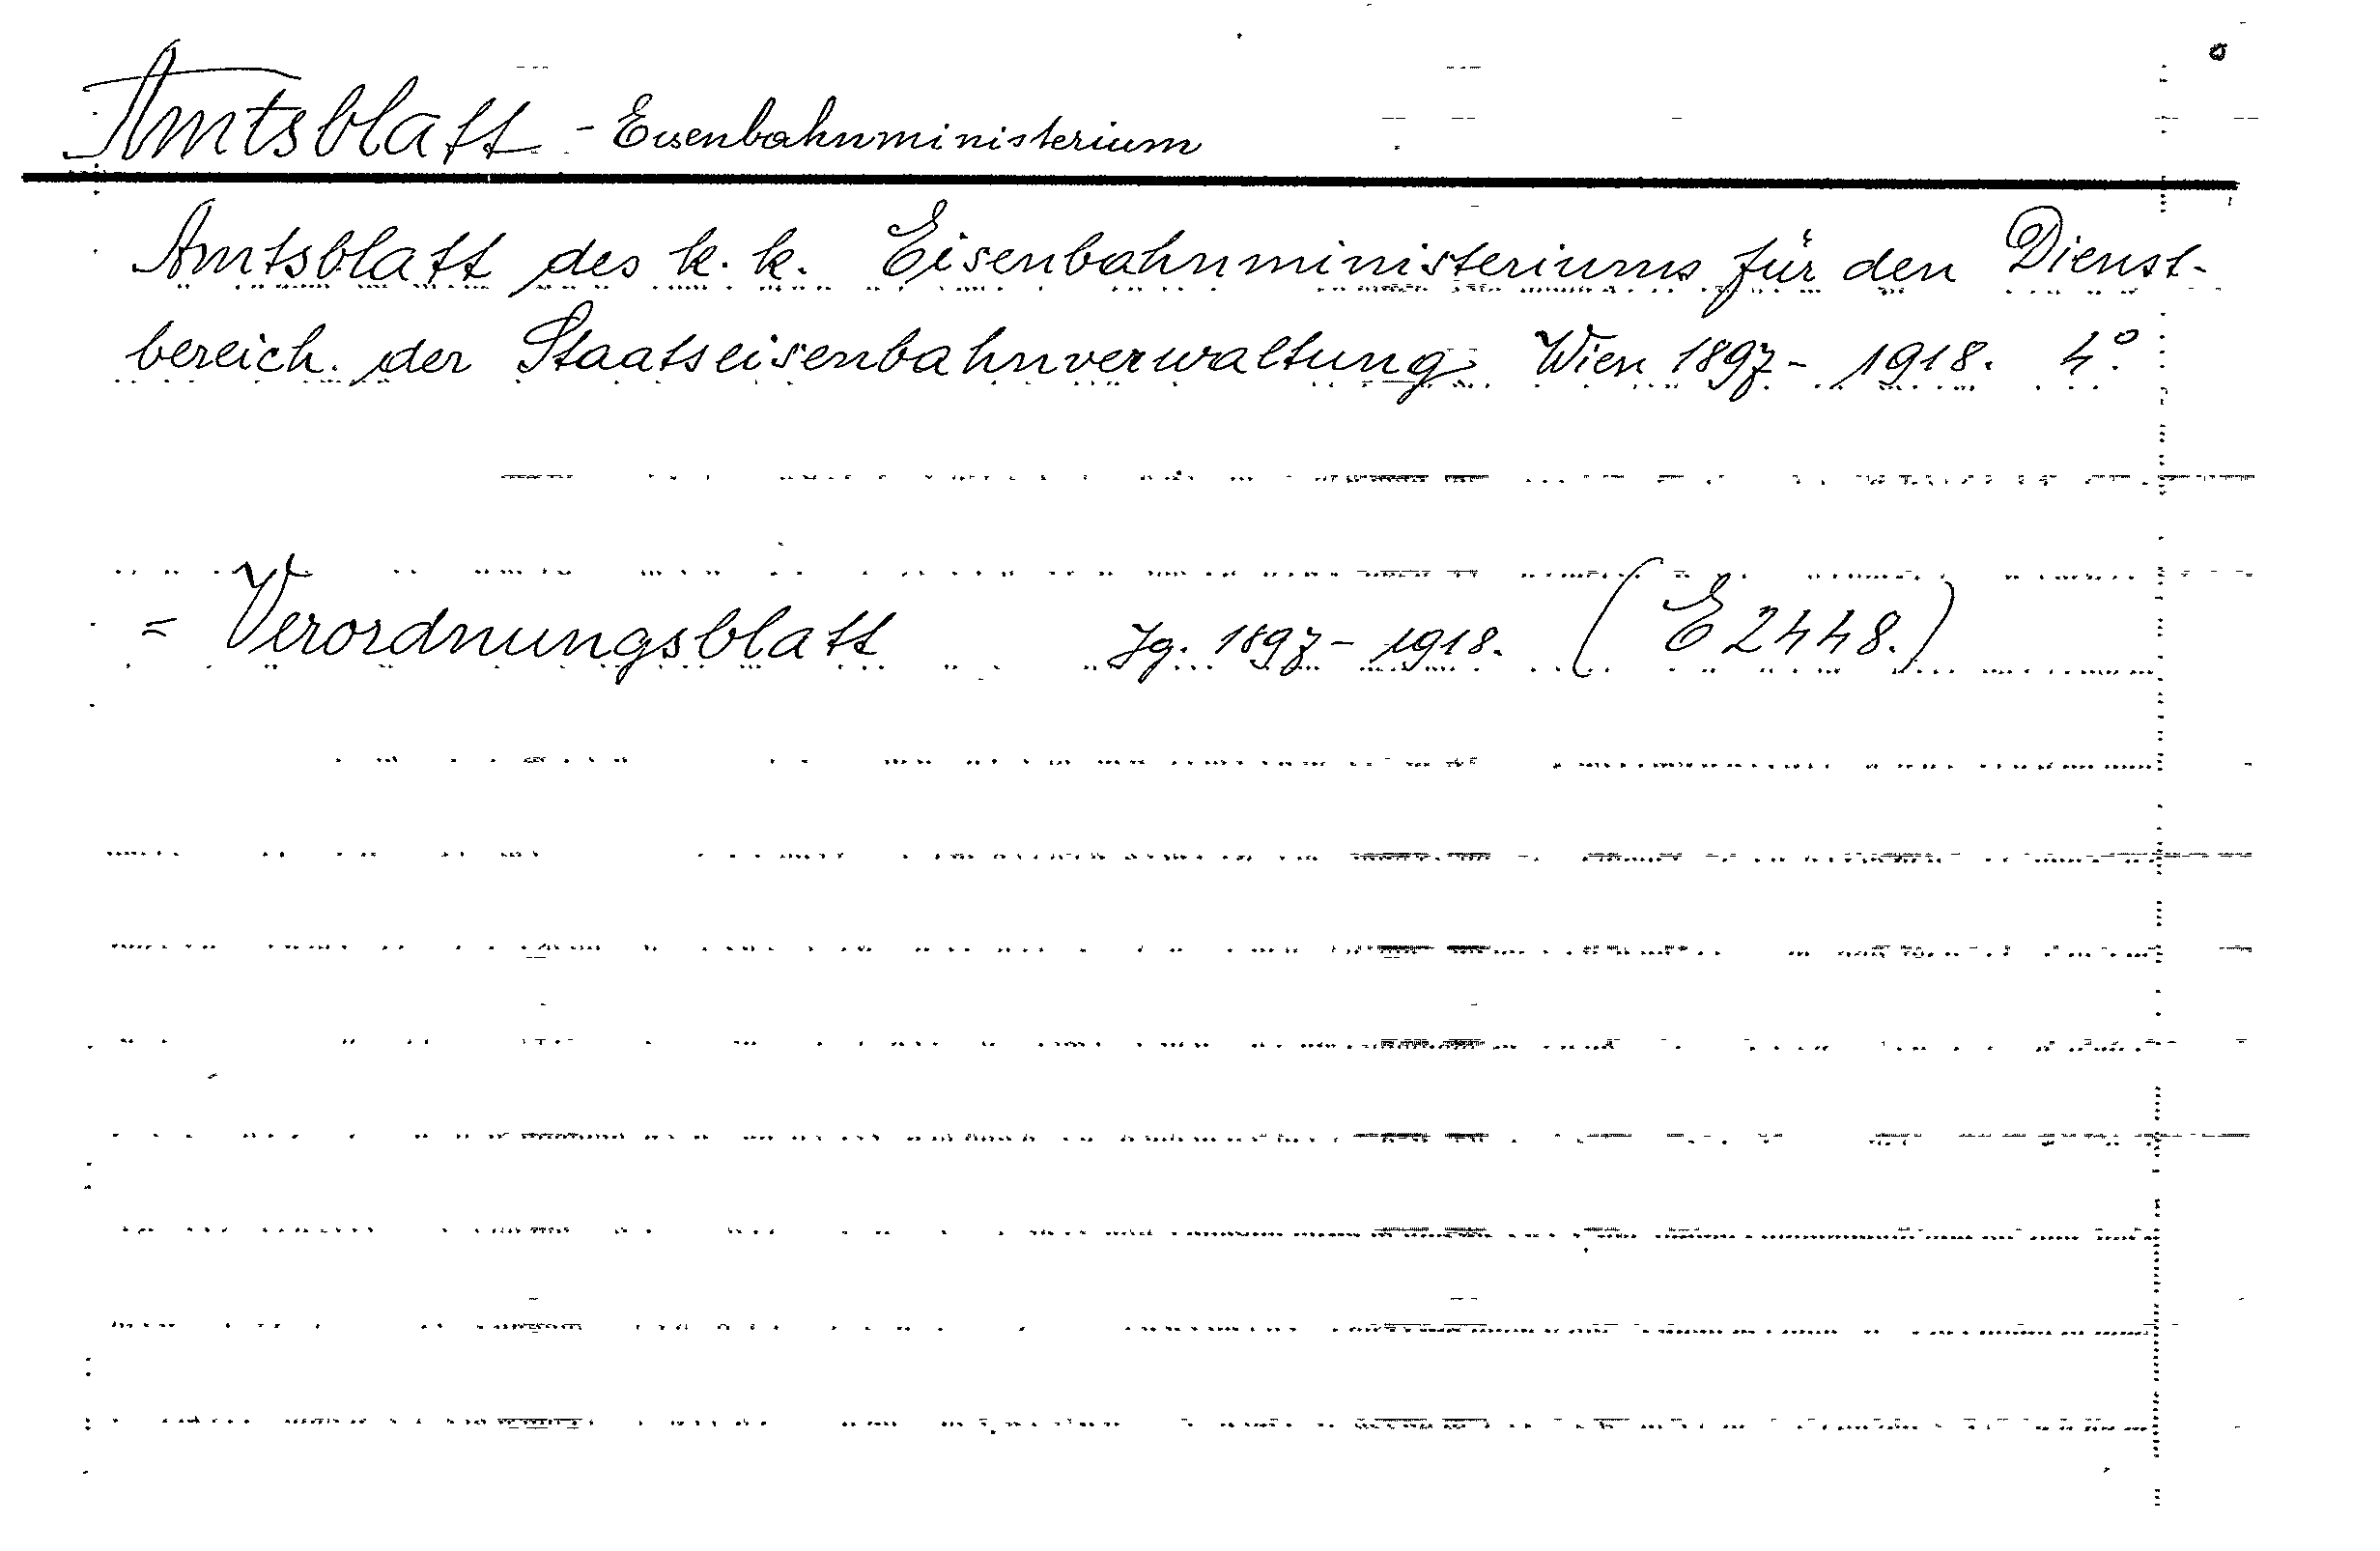 Amtsblatt - Eisenbahnministerium
Amtsblatt des k. k. Eisenbahnministeriums für den Dienst-
bereich der Staatseisenbahnverwaltung Wien 1897 - 1918. 4°.
= Verordnungsblatt Jg. 1897 - 1918. (E 2448.)